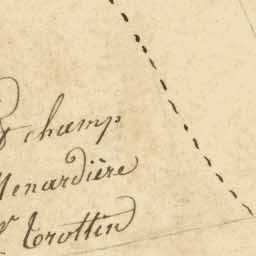 champ
Menardière
Trottin